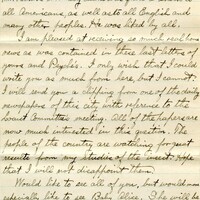 all Americans, as well as to all English and
many other peoples. He was liked by all.
I am pleased at receiving so much real home
news as was contained in these last letters of
yours and Psyche's. I only wish that I could
write you as much from here, but I cannot.
I will send you a clipping from one of the daily
newspapers of this city with reference to the
Locust Committee meeting. All of the papers are
now much interested in this question. The
people of the country are watching for great
results from my studies of the insect. Hope
that I will not disappoint them.
Would like to see all of you, but would more
especially like to see Baby Alice. She will be